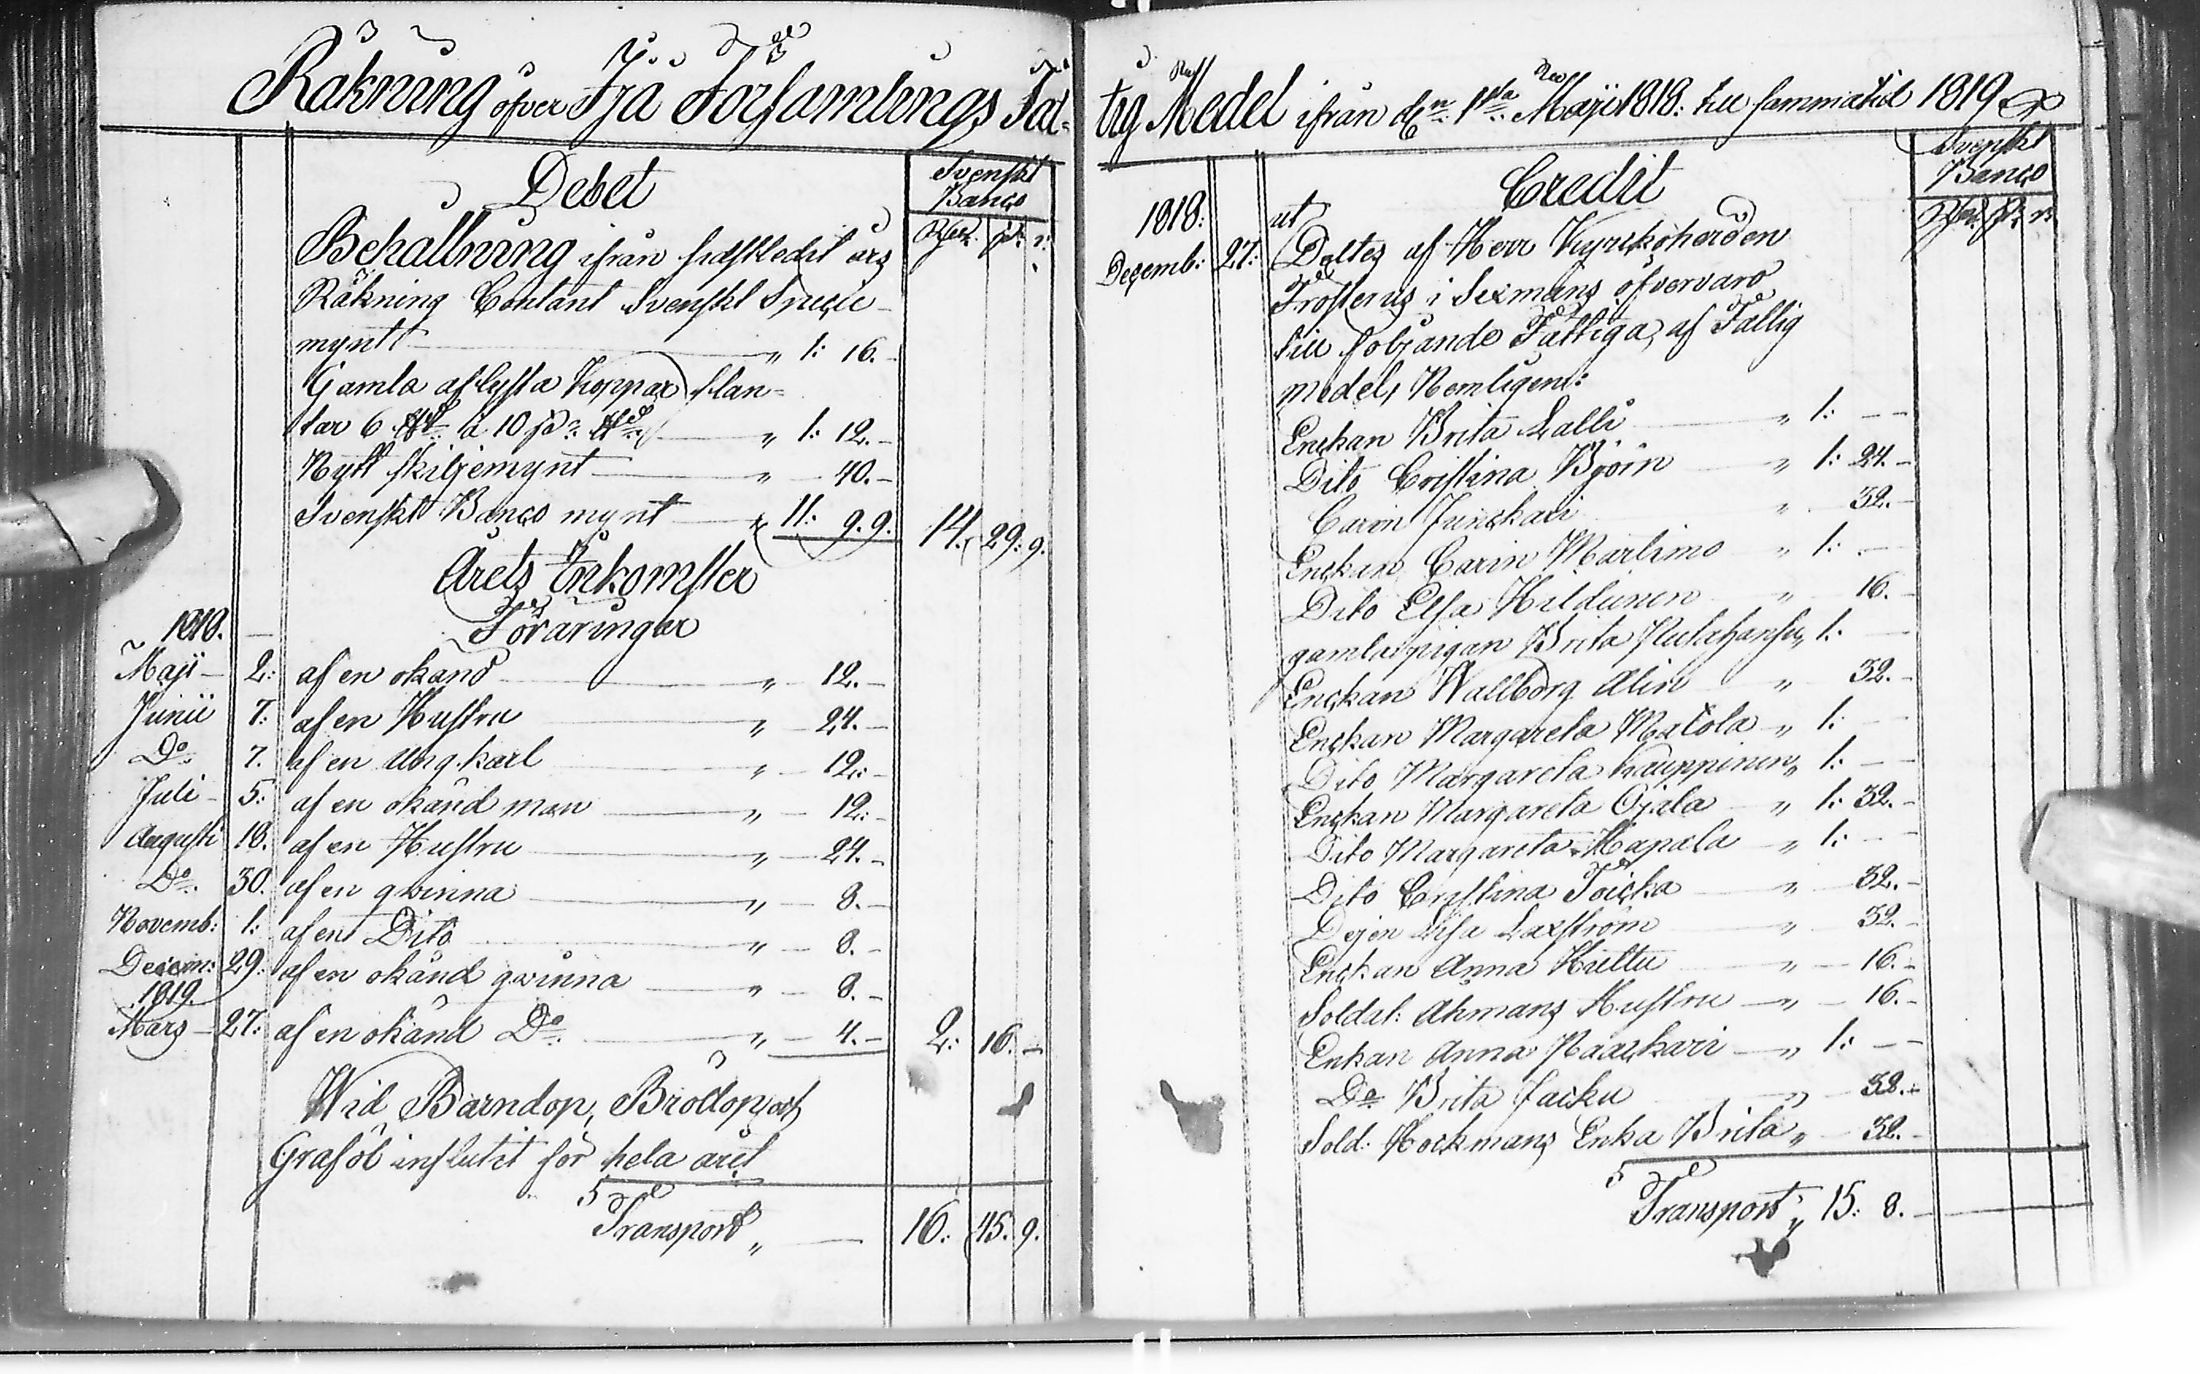 Räkning öfver Ijå Församlings Fat-
Debet
Svenskt
Banco
Behållning ifrån sidstledit års
Räkning Contant Svenskt Specie
mynt " 1: 16.
Gamla aflysta koppar slan-
tar 6 à 10 " 1: 12.
Nytt skiljemynt " 40.
Svenskt Banco mynt " 11: 9. 9. 14. 29: 9.
Årets Inkomster
1818. Föräringar
Maji 2: af en okänd " 12.
Junii 7: af en Hustru " 24.
Do 7. af en Ung karl " 12.
Juli 5: af en okänd man " 12.
Augusti 18. af en Hustru " 24.
Do 30. af en qvinna " 8.
Novemb: 1: af en Dito " 8.
Decem: 29. af en okänd qvinna " 8.
1819
Mars 27: af en okänd Do " 4. 2: 16.
Wid Barndop, Brödop, och
Graföl influtit för hela året
Transport " 16: 45: 9.
tig Medel ifrån den 1sta Maji 1818: till sammatid 1819
Credit
Svenskt
Banco
1818: ut
Decemb: 27: Deltes af Herr Kyrckoherden
Frosterus i Sexmäns öfvervaro
till följande Fattiga, af Fattig
medel, Nemligen:
Enckan Brita Lalli " 1:
Dito Cristina Björn " 1: 24.
Carin Junckari " 32.
Enckan Carin Martimo " 1:
Dito Elsa Hildunen " 16.
gamla pigan Brita " 1:
Enckan Wallborg Alin " 32.
Enckan Margareta Matola " 1:
Dito Margareta Kauppinen " 1:
Enckan Margareta Ojala " 1: 32.
Dito Margareta Hapala " 1:
Dito Cristina Toicka " 32.
Dejen Lisa Laxström " 32.
Enckan Anna Hultu " 16.
Soldat: Ahmans Hustru " 16.
Enkan Anna Naaskari " 1:
Do Brita Jacku " 32.
Sold: Hockmans Enka Brita " 32.
Transport " 15: 8.